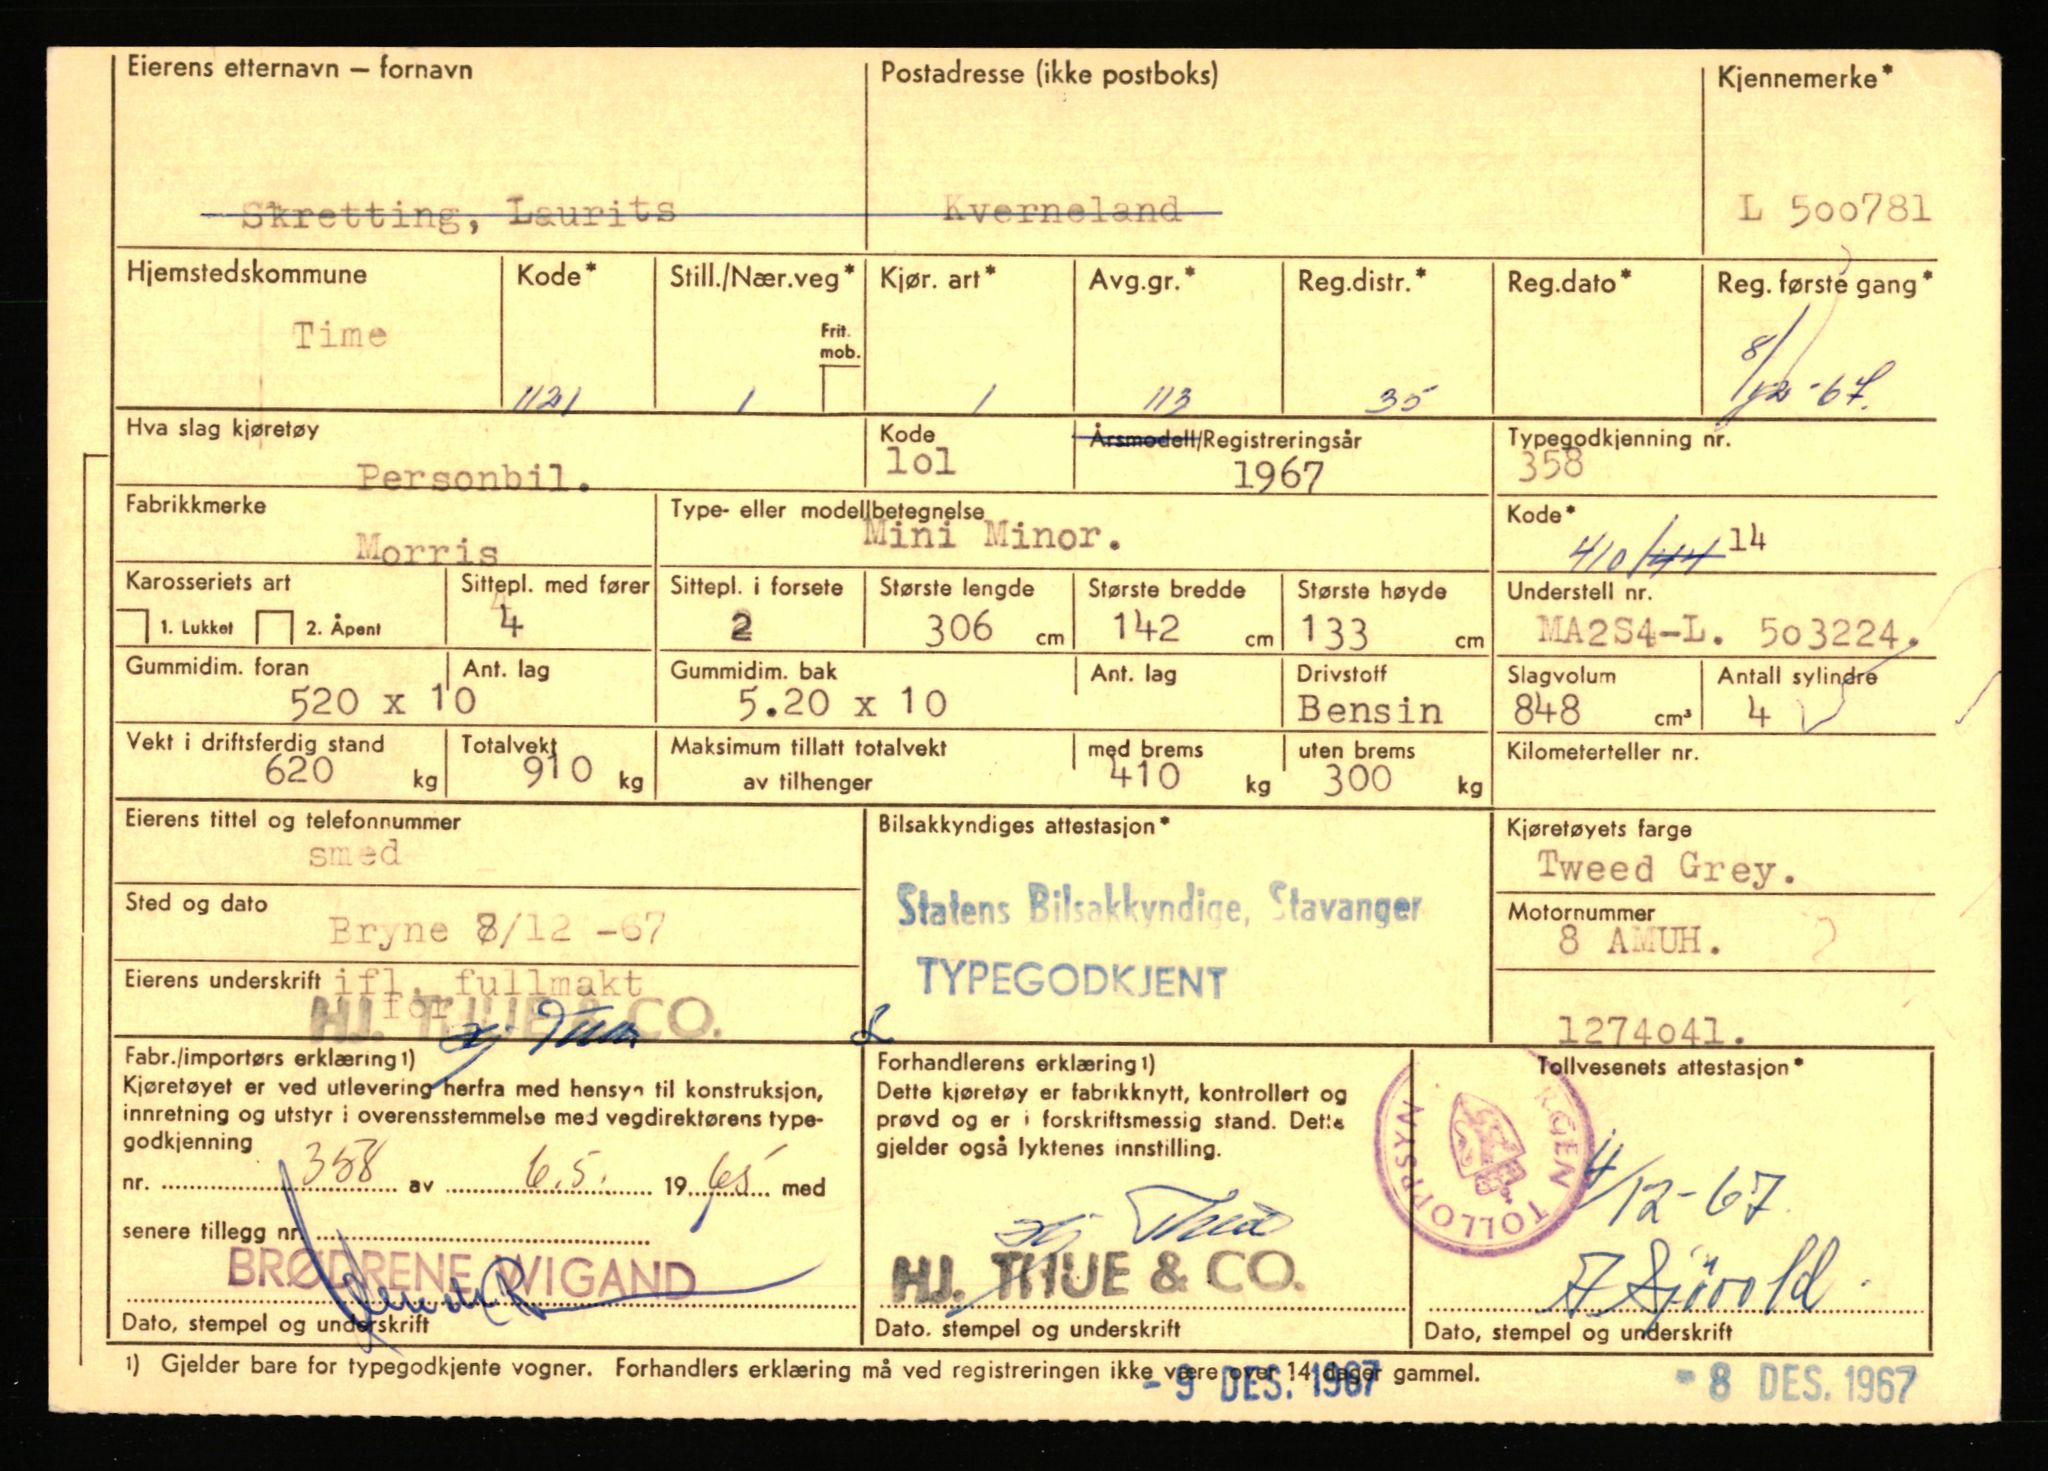 Eierens etternavn – fornavn
Postadresse (ikke postboks)
Kjennemerke*
Skretting, Laurits
Kverneland
L 500781
Hjemstedskommune
Kode*
Still./Nær.veg*
Kjør. art*
Avg.gr.*
Reg.distr.*
Reg.dato*
Reg. første gang*
Time
Frit. mob.
1121
1
1
113
35
8/12-67.
Hva slag kjøretøy
Kode
Årsmodell/Registreringsår
Typegodkjenning nr.
Personbil.
1o1
1967
358
Fabrikkmerke
Type- eller modellbetegnelse
Kode*
Morris
Mini Minor.
410/44 14
Karosseriets art
Sittepl. med fører
Sittepl. i forsete
Største lengde
Største bredde
Største høyde
Understell nr.
1. Lukket
2. Åpent
4
2
306 cm
142 cm
133 cm
MA2S4-L. 503224.
Gummidim. foran
Ant. lag
Gummidim. bak
Ant. lag
Drivstoff
Slagvolum
Antall sylindre
520 x 10
5.20 x 10
Bensin
848 cm³
4
Vekt i driftsferdig stand
Totalvekt
Maksimum tillatt totalvekt
av tilhenger
med brems
uten brems
Kilometerteller nr.
620 kg
910 kg
410 kg
300 kg
Eierens tittel og telefonnummer
Bilsakkyndiges attestasjon*
Kjøretøyets farge
smed
Tweed Grey.
Sted og dato
Bryne 8/12 -67
Statens Bilsakkyndige, Stavanger
TYPEGODKJENT
Motornummer
8 AMUH.
1274o41.
Eierens underskrift
ifl. fullmakt
for
HJ. THUE & CO.
Hj Thue
Fabr./importørs erklæring 1)
Kjøretøyet er ved utlevering herfra med hensyn til konstruksjon,
innretning og utstyr i overensstemmelse med vegdirektørens type-
godkjenning
nr. 358 av 6.5. 1965 med
senere tillegg nr.
BRØDRENE WIGAND
Dato, stempel og underskrift
Forhandlerens erklæring 1)
Dette kjøretøy er fabrikknytt, kontrollert og
prøvd og er i forskriftsmessig stand. Dette
gjelder også lyktenes innstilling.
Hj Thue
HJ. THUE & CO.
Dato. stempel og underskrift
Tollvesenets attestasjon*
TOLLOPPSYN
4/12-67.
Dato, stempel og underskrift
1) Gjelder bare for typegodkjente vogner. Forhandlers erklæring må ved registreringen ikke være over 14 dager gammel.
- 9 DES. 1967
- 8 DES. 1967